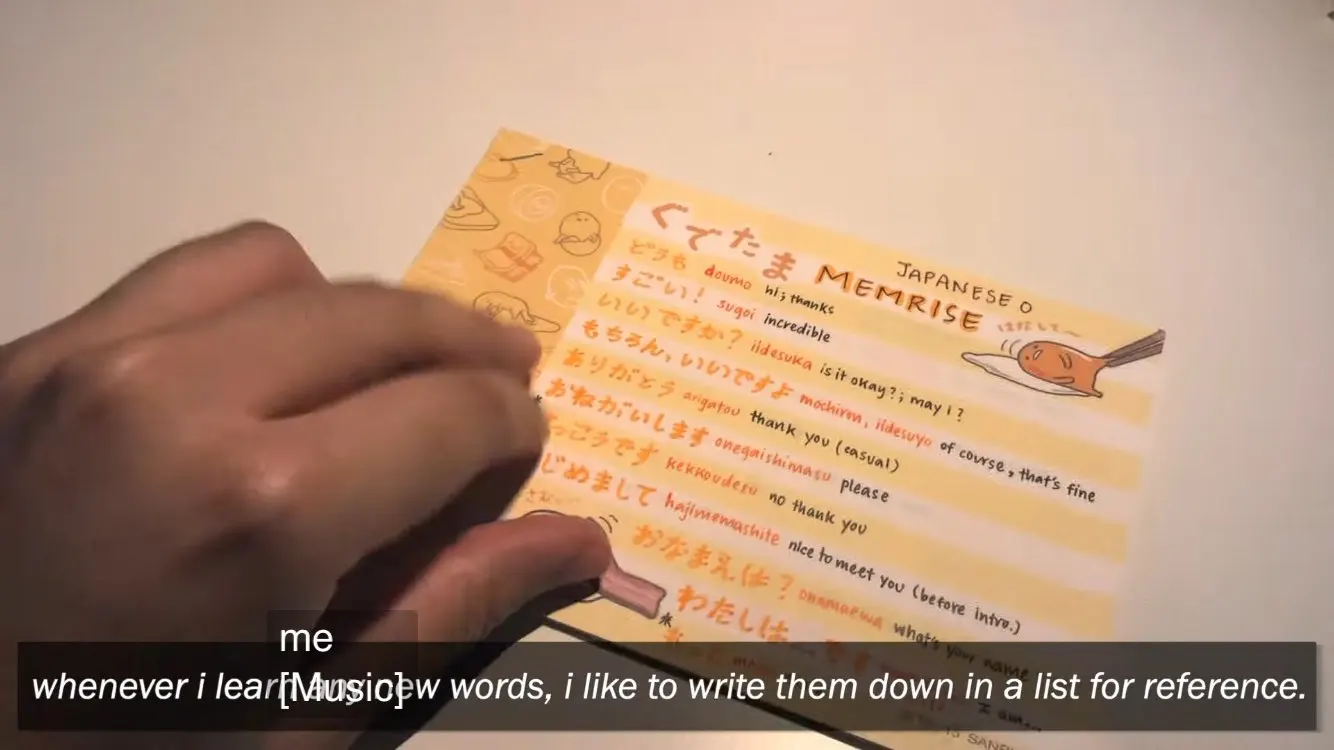 ぐでたま
JAPANESE 0
MEMRISE
はなして〜
どうも doumo hi; thanks
すごい! sugoi incredible
いいですか? iidesuka is it okay?; may i?
もちろん、いいですよ mochiron, iidesuyo of course, that's fine
ありがとう arigatou thank you (casual)
おねがいします onegaishimasu please
っこうです kekkoudesu no thank you
じめまして hajimemashite nice to meet you (before intro.)
おなまえは? onamaewa what's your name
わたしは... です I am...
me
[Music]
whenever i learn any new words, i like to write them down in a list for reference.